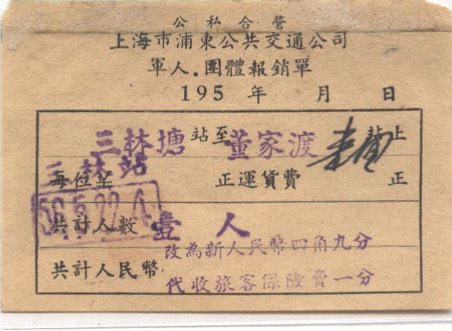 公私合營
上海市浦東公共交通公司
軍人.團體報銷單
195 年 月 日
三林塘 站至 董家渡 站止
三林站
每位 正運貨費 正
共計人數 壹人
改為新人民幣四角九分
共計人民幣
代收旅客保險費一分